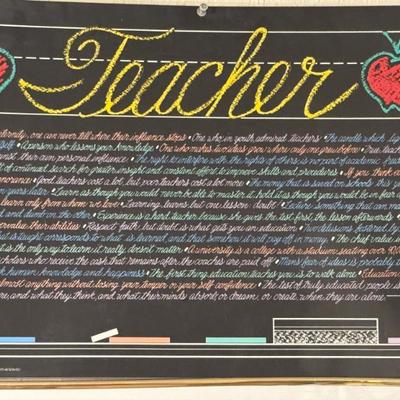 Teacher
eternity; one can never tell where their influence stops • One who, in youth, admired teachers • The candle which lights
itself • A person who lessons your knowledge • One who makes two ideas grow where only one grew before • True teac
inst their own personal influence • The right to interfere with the rights of others is no part of academic free
t of continual search for greater insight and constant effort to improve skills and procedures • If you think educ
ignorance • Good teachers cost a lot, but poor teachers cost a lot more • The money that is saved on schools this yea
years later • Learn as though you would never be able to master it; hold it as though you would be in fear of
learn only from whom we love • Learning learns but one lesson: doubt • One thing
and dumb on the other • Experience is a hard teacher because she gives the test first, the lesson afterwards
overvalue their abilities • Respect faith, but doubt is what gets you an education • Two delusions fostered by
is taught corresponds to what is learned, and that somehow it will pay off in money • The chief value
is the only way to learn it really doesn't matter • A university is a college with a stadium seating over 100
teachers who receive the cash that remains after the coaches are paid off • Man's fear of ideas is probably
human knowledge and happiness • The first thing education teaches you is to walk alone • Education
almost anything without losing your temper or your self confidence • The test of truly educated people is
are, and what they think, and what their minds absorb, or dream, or create, when they are alone